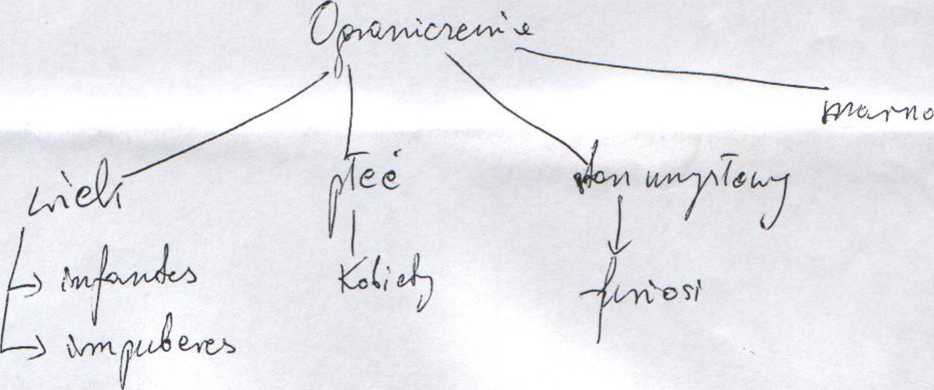 Ograniczenie
marno
wiek płeć stan umysłowy
infantes Kobiety furiosi
impuberes